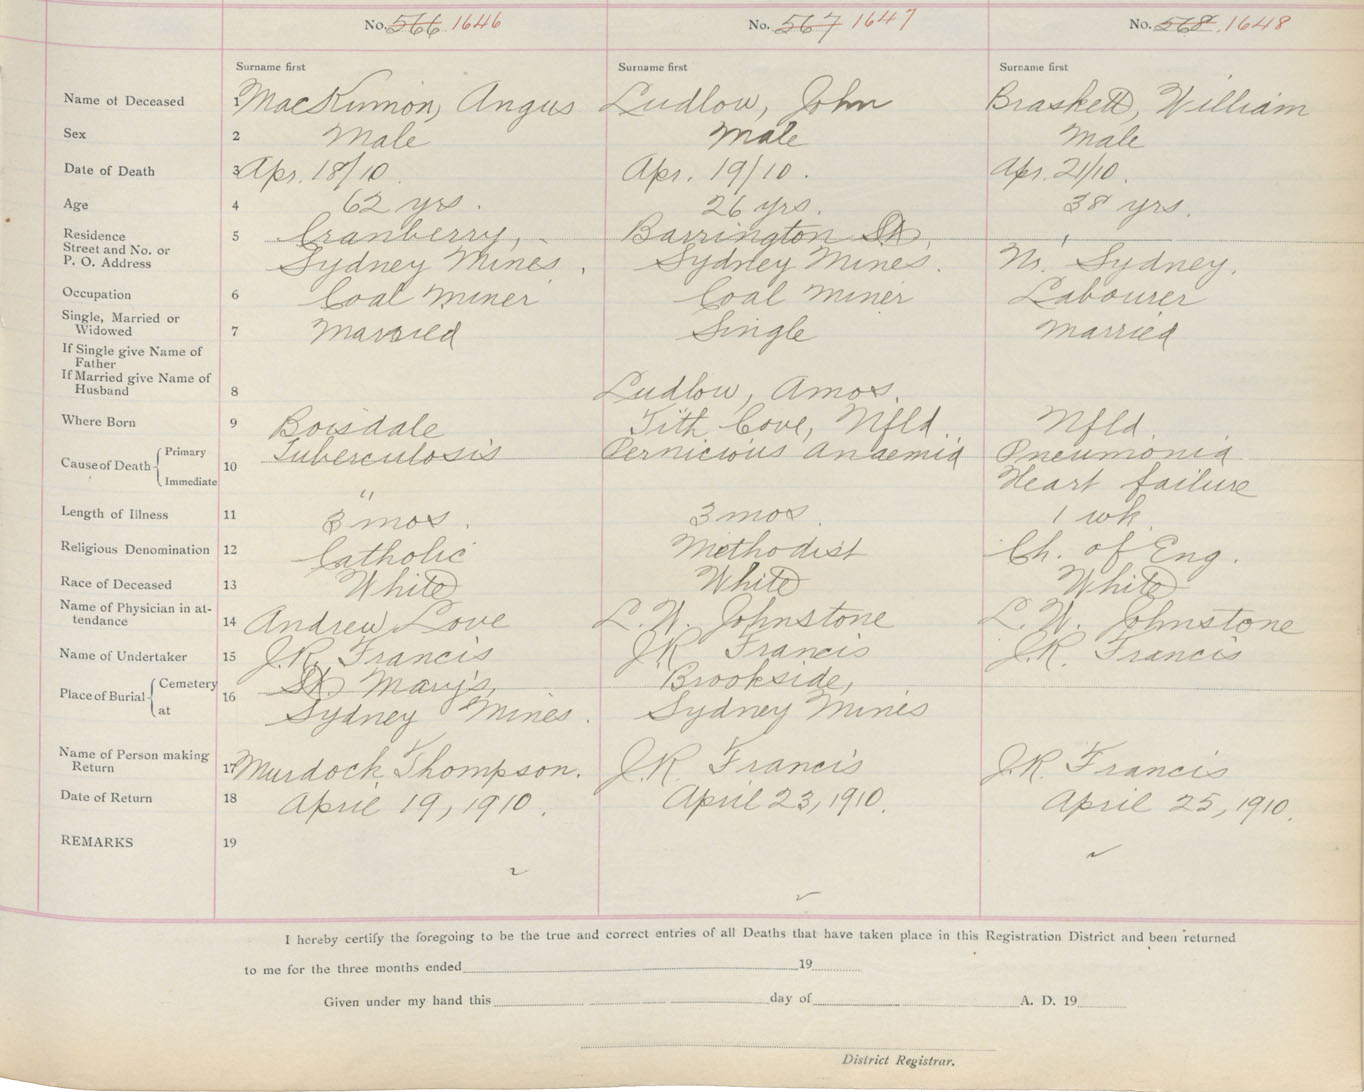 No. 566 1646 No. 567 1647 No. 568 1648
Surname first Surname first Surname first
Name of Deceased 1 MacKinnon, Angus Ludlow, John Braskett, William
Sex 2 Male Male Male
Date of Death 3 Apr. 18/10. Apr. 19/10. Apr. 21/10.
Age 4 62 yrs. 26 yrs. 38 yrs.
Residence 5 Cranberry, Barrington St,
Street and No. or
P. O. Address Sydney Mines. Sydney Mines. No. Sydney.
Occupation 6 Coal Miner Coal Miner Labourer
Single, Married or
Widowed 7 Married Single Married
If Single give Name of
Father
If Married give Name of
Husband 8 Ludlow, Amos.
Where Born 9 Boisdale Tith Cove, Nfld. Nfld.
Cause of Death Primary 10 Tuberculosis Pernicious Anaemia Pneumonia
Immediate " Heart failure
Length of Illness 11 3 mos. 3 mos. 1 wk.
Religious Denomination 12 Catholic Methodist Ch. of Eng.
Race of Deceased 13 White White White
Name of Physician in at-
tendance 14 Andrew Love L. W. Johnstone L. W. Johnstone
Name of Undertaker 15 J.R. Francis J.R. Francis J.R. Francis
Place of Burial Cemetery 16 St Mary's, Brookside,
at Sydney Mines. Sydney Mines
Name of Person making
Return 17 Murdock Thompson. J.R. Francis J.R. Francis
Date of Return 18 April 19, 1910. April 23, 1910. April 25, 1910.
REMARKS 19
I hereby certify the foregoing to be the true and correct entries of all Deaths that have taken place in this Registration District and been returned
to me for the three months ended 19
Given under my hand this day of A. D. 19
District Registrar.